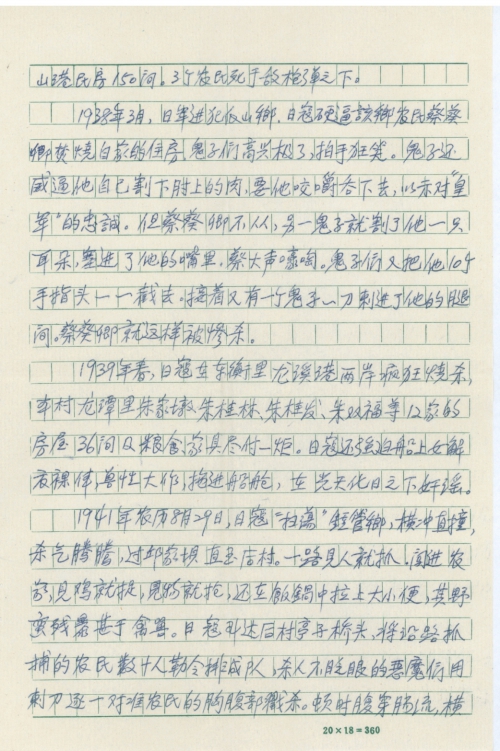 山港民房150间。3个农民死于敌枪弹之下。
1938年3月，日军进犯仮山乡，日寇硬逼該鄉农民蔡葵
卿焚烧自家的住房，鬼子们高兴极了，拍手狂笑。鬼子还
威逼他自己割下肘上的肉，要他咬嚼吞下去，以示对“皇
军”的忠誠。但蔡葵卿不从，另一鬼子就割了他一只
耳朵，塞进了他的嘴里，蔡大声嚎啕。鬼子们又把他10个
手指头一一截去。接着又有一个鬼子一刀刺进了他的腿
间。蔡葵卿就这样被惨杀。
1939年春，日寇在东衡里龙溪港两岸疯狂烧杀，
本村龙潭里朱家墩朱桂林、朱桂发、朱双福等12家的
房屋36间及粮食家具尽付一炬。日寇还强迫船上女解
衣裸体，兽性大作，拖进船舱，在光天化日之下奸淫。
1941年农历8月29日，日寇“扫荡”鋞管鄉，横冲直撞，
杀气腾腾，过邱家坝直至后村。一路见人就抓，闯进农
家，见鸡就捉，見物就抢，还在飯鍋中拉上大小便，其野
蛮残暴甚于禽兽。日寇到达后村亭子桥头，将沿路抓
捕的农民数十人勒令排成队，杀人不眨眼的恶魔们用
刺刀逐个对准农民的胸腹部戳杀。顿时腹穿肠流，横
20×18=360